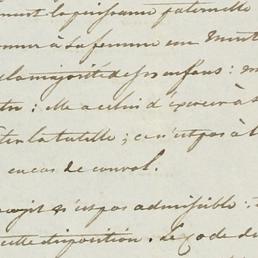 la puissance paternelle
à la femme un
la majorité de ses enfans : m
: elle a celui d'exercer à s
la tutelle ; ce n'est pas à l
en cas de convol.
n'est pas admissible :
cette disposition. Le Code d